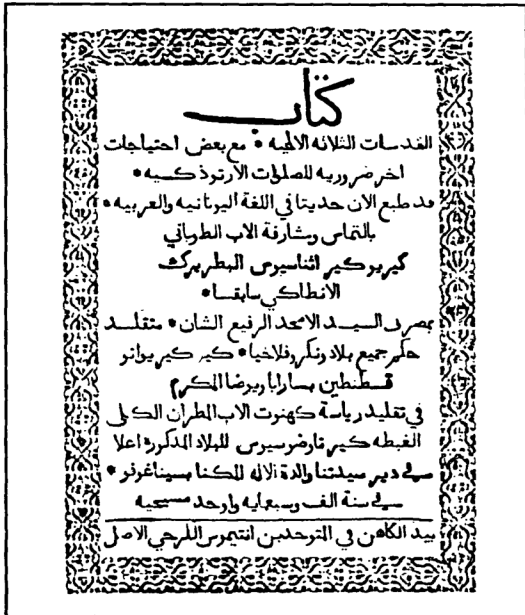 كتاب
القدسات الثلاثه الالهيه * مع بعض احتياجات
اخر ضروريه للصلوات الارتوذكسيه *
قد طبع الان حديثا في اللغة اليونانيه والعربيه *
بالتماس ومشارفة الاب الطوباني
كيريو كير اثناسيوس البطريرك
الانطاكي سابقا *
بمصرف السيد الامجد الرفيع الشان * متقلد
حكم جميع بلاد ونكروفلاخيا * كير كير يوانو
قسطنطين بسارابا ويوضا المكرم
في تقليد رياسة كهنوت الاب المطران الكلي
الغبطه كير تاوضوسيوس للبلاد المذكورة اعلا
في دير سيدتنا والدة الاله المكنا بسيناغوفو *
في سنة الف وسبعمايه وواحد مسيحيه
بيد الكاهن في المتوحدين انتيموس الكرجي الاصل